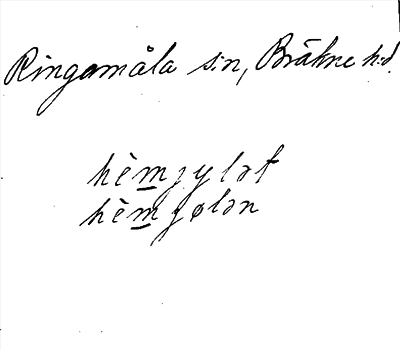 Ringamåla s:n, Bräkne h:d.
hèm̲ȷylət
hèm̲ȷølən